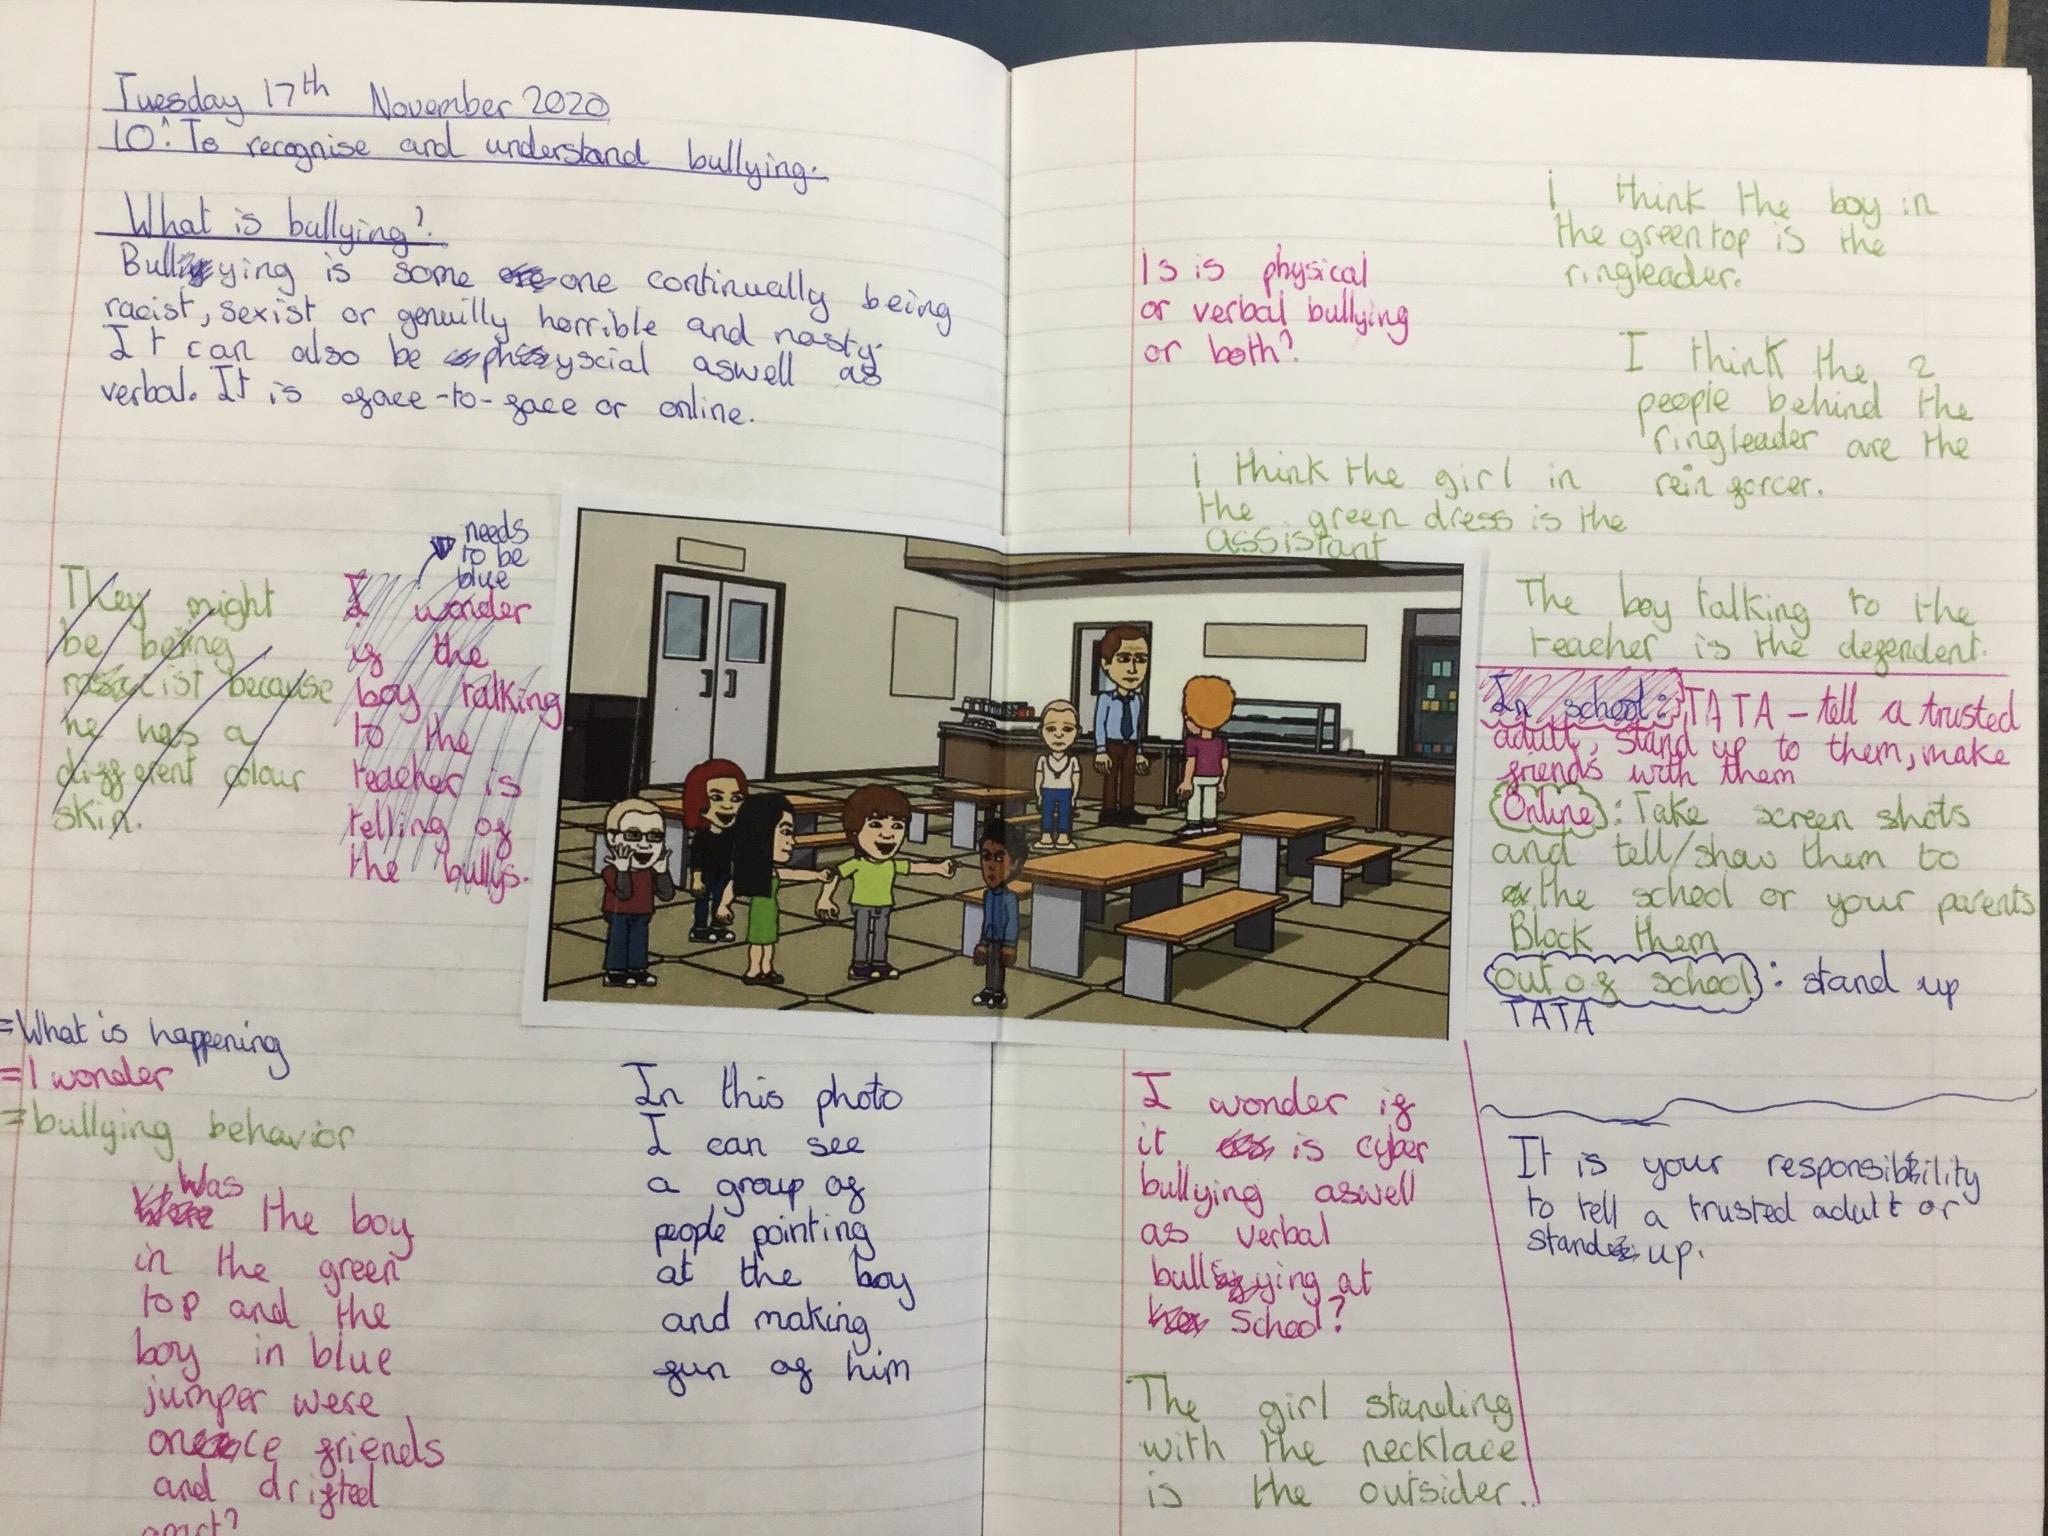 Tuesday 17th November 2020
10: To recognise and understand bullying.
What is bullying?
Bullying is some one continually being
racist, sexist or genuilly horrible and nasty.
It can also be physcial aswell as
verbal. It is face-to-face or online.
needs
to be
blue
They might
be being
racist because
he has a
different colour
skin.
I wonder
if the
boy talking
to the
teacher is
telling of
the bullys.
=What is happening
=I wonder
=bullying behavior
Was
the boy
in the green
top and the
boy in blue
jumper were
once friends
and drifted
apart?
In this photo
I can see
a group of
people pointing
at the boy
and making
fun of him
Is is physical
or verbal bullying
or both?
I think the boy in
the green top is the
ringleader.
I think the 2
people behind the
ringleader are the
reinforcer.
I think the girl in
the green dress is the
assistant
The boy talking to the
teacher is the defendent.
In school: TATA - tell a trusted
adult, stand up to them, make
friends with them
Online: Take screen shots
and tell/show them to
the school or your parents
Block them
out of school: stand up
TATA
I wonder if
it is cyber
bullying aswell
as verbal
bullying at
School?
The girl standing
with the necklace
is the outsider.
It is your responsibility
to tell a trusted adult or
stand up.